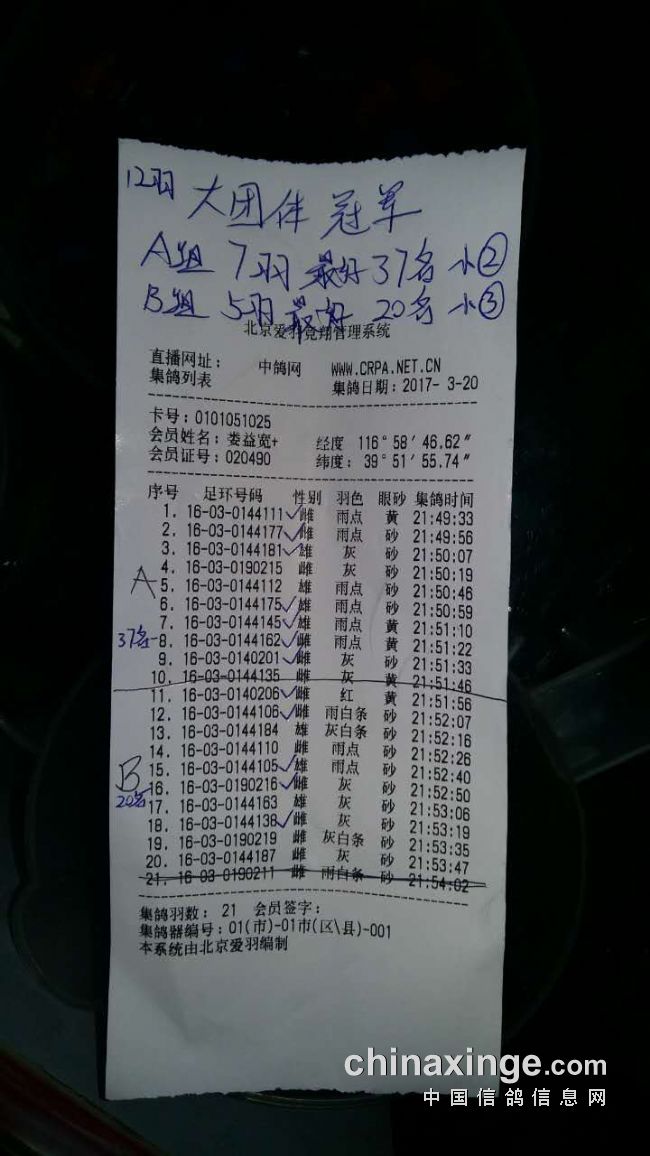 12羽 大团体 冠军
A组 7羽 最好37名 小②
B组 5羽 最好 20名 小③
北京爱羽竞翔管理系统
直播网址： 中鸽网 WWW.CRPA.NET.CN
集鸽列表 集鸽日期：2017- 3-20
卡号：0101051025
会员姓名：娄益宽+ 经度 116°58′46.62″
会员证号：020490 纬度： 39°51′55.74″
序号 足环号码 性别 羽色 眼砂 集鸽时间
1. 16-03-0144111✓雌 雨点 黄 21:49:33
2. 16-03-0144177✓雌 雨点 砂 21:49:56
3. 16-03-0144181✓雄 灰 砂 21:50:07
4. 16-03-0190215 雌 灰 砂 21:50:19
A
5. 16-03-0144112 雄 雨点 砂 21:50:46
6. 16-03-0144175✓雄 雨点 砂 21:50:59
7. 16-03-0144145✓雄 雨点 黄 21:51:10
37名 8. 16-03-0144162✓雌 雨点 黄 21:51:22
9. 16-03-0140201✓雌 灰 砂 21:51:33
10. 16-03-0144135 雌 灰 黄 21:51:46
11. 16-03-0140206✓雌 红 黄 21:51:56
12. 16-03-0144106✓雌 雨白条 砂 21:52:07
13. 16-03-0144184 雄 灰白条 砂 21:52:16
14. 16-03-0144110 雌 雨点 砂 21:52:26
B
15. 16-03-0144105✓雄 雨点 砂 21:52:40
20名 16. 16-03-0190216✓雌 灰 砂 21:52:50
17. 16-03-0144163 雄 灰 砂 21:53:06
18. 16-03-0144138✓雌 灰 砂 21:53:19
19. 16-03-0190219 雌 灰白条 砂 21:53:35
20. 16-03-0144187 雌 灰 砂 21:53:47
21. 16-03-0190211 雌 雨白条 砂 21:54:02
集鸽羽数： 21 会员签字：
集鸽器编号：01(市)-01市(区\县)-001
本系统由北京爱羽编制
chinaxinge.com
中国信鸽信息网